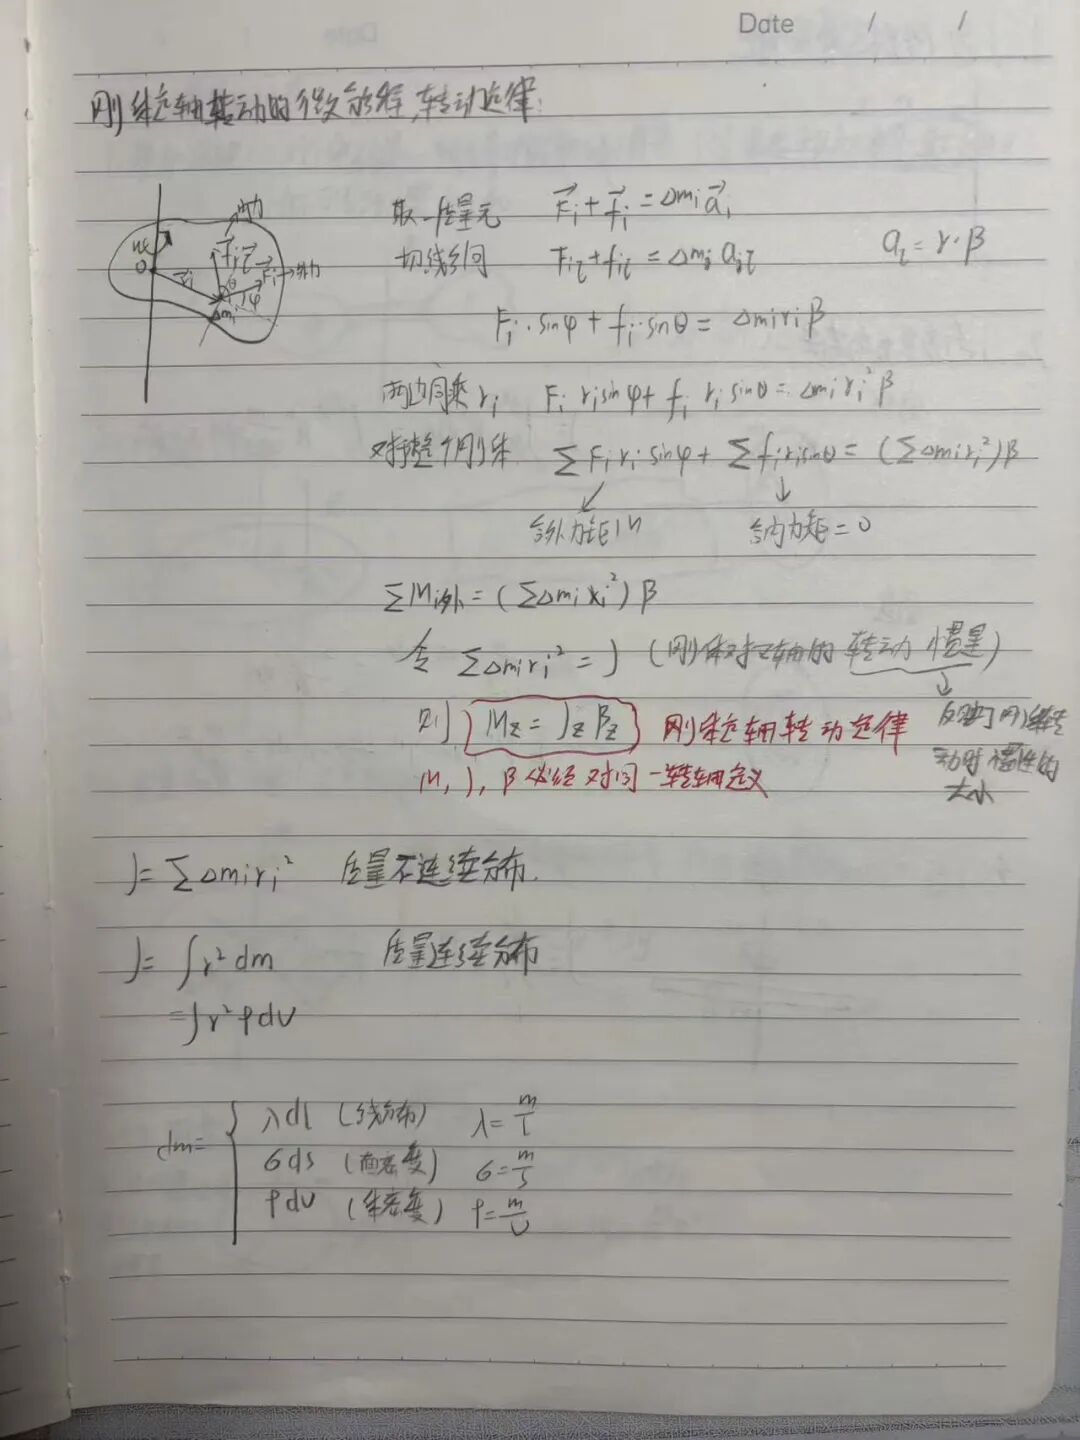 Date / /
刚体定轴转动的微分方程,转动定律:
内力
外力
取一质量元 F⃗i+f⃗i=Δmi a⃗i
切线方向 Fiτ+fiτ=Δmi aiτ aτ=r·β
Fi·sinφ+fi·sinθ=Δmi ri β
两边同乘ri Fi ri sinφ+fi ri sinθ=Δmi ri² β
对于整个刚体 ∑Fi ri·sinφ+∑fi ri sinθ=(∑Δmi ri²)β
合外力矩M 合内力矩=0
∑Mi外=(∑Δmi ri²)β
令 ∑Δmi ri²=J (刚体对Z轴的转动惯量)
则 Mz=Jzβz 刚体定轴转动定律
反映了刚体转动时惯性的大小
M,J,β必须对同一转轴定义
J=∑Δmi ri² 质量不连续分布.
J=∫r²dm 质量连续分布
=∫r²ρdV
dm= { λdl (线分布) λ=m/l
σds (面密度) σ=m/s
ρdv (体密度) ρ=m/v